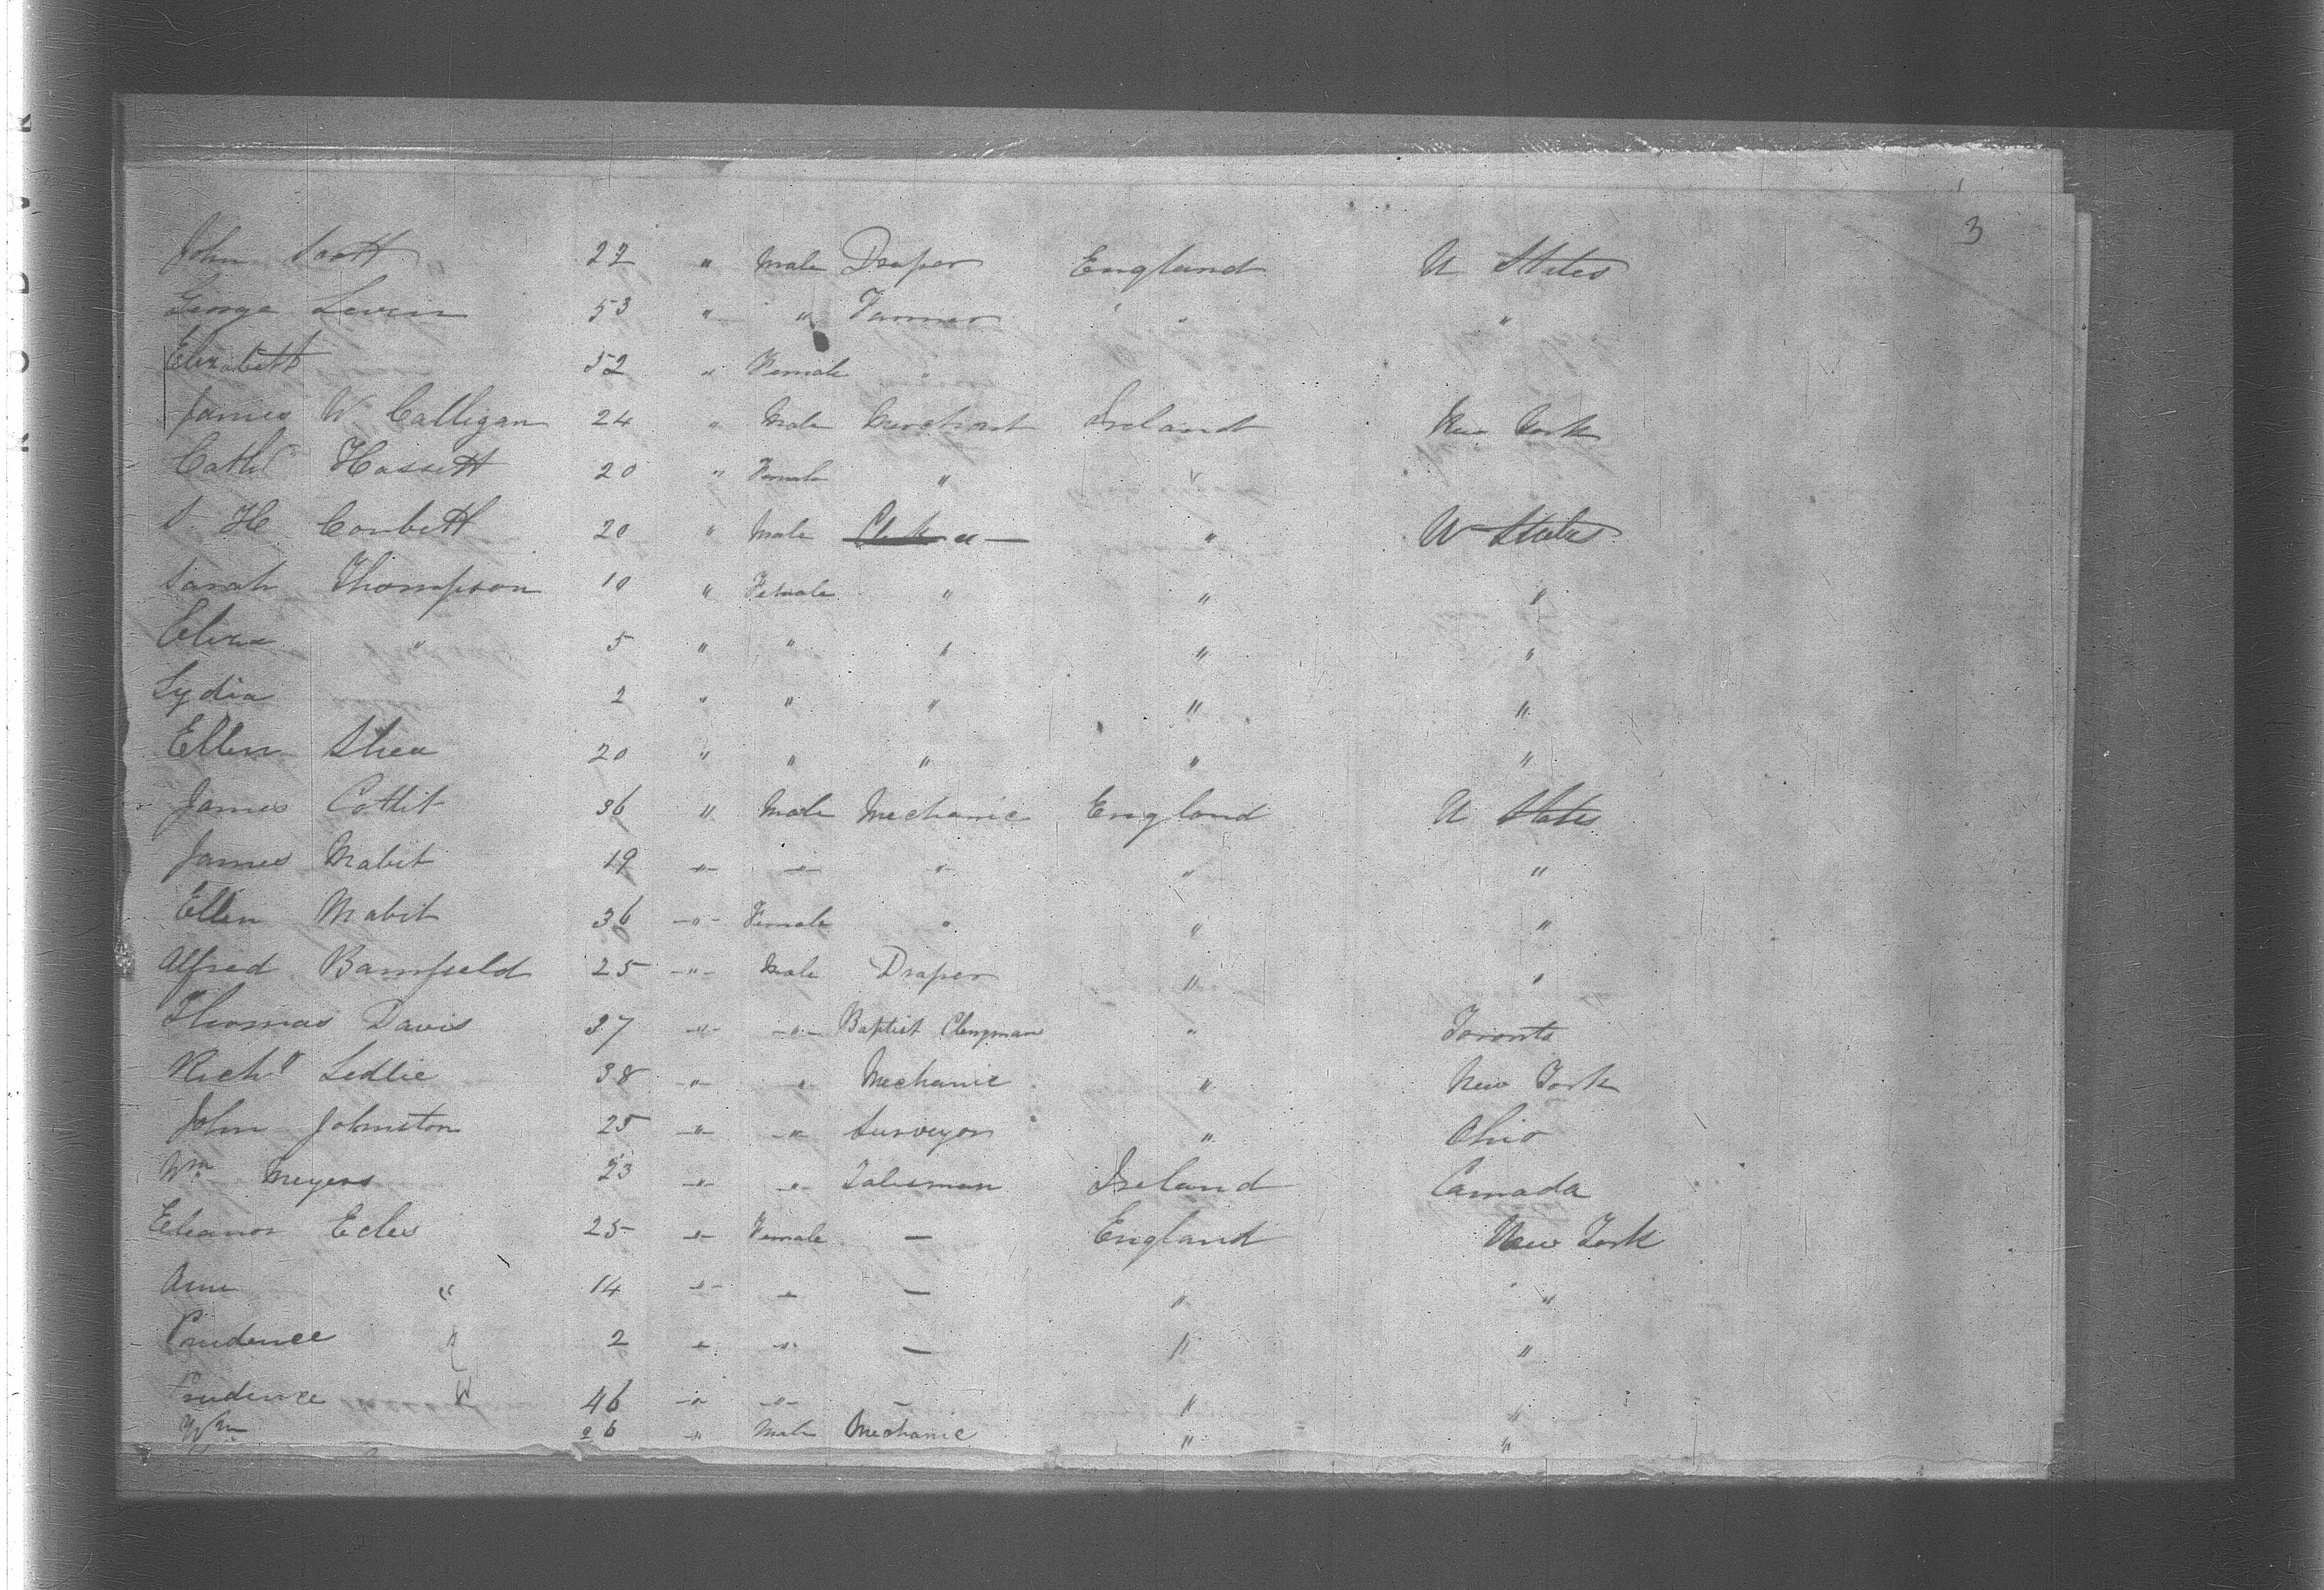 3
John Scott 22 " Male Draper England U States
George Leven 53 " " Farmer " "
Elizabeth 52 " Female "
James W Calligan 24 " Male Merchant Ireland New York
Cathe Hassett 20 " Female " "
S. H. Corbett 20 " Male Clerk " " U States
Sarah Thompson 10 " Female " " "
Eliza " 5 " " " " "
Lydia 2 " " " " "
Ellen Shea 20 " " " " "
James Cottit 36 " Male Mechanic England U States
James Mabit 19 " " " " "
Ellen Mabit 36 " Female " " "
Alfred Bamfield 25 " Male Draper " "
Thomas Davis 37 " " Baptist Clergyman " Toronto
Richd Ledlie 38 " " Mechanic " New York
John Johnston 25 " " Surveyor " Ohio
Wm Meyers 23 " " Talisman Ireland Canada
Eleanor Ecles 25 " Female — England New York
Ann " 14 " " — " "
Prudence " 2 " " — " "
Prudence " 46 " " — " "
Wm 26 " Male Mechanic " "